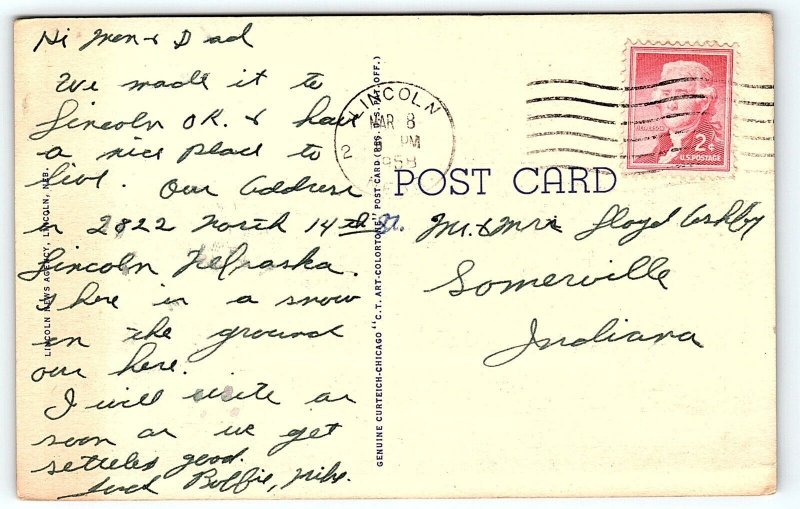 Hi Mom & Dad
We made it to
Lincoln OK. & have
a nice place to
live. Our address
is 2822 North 14th St.
Lincoln Nebraska.
There is a snow
on the ground
our here.
I will write as
soon as we get
settled good.
Bobbie, Mike.
LINCOLN NEWS AGENCY, LINCOLN, NEB.
GENUINE CURTEICH-CHICAGO "C.T. ART-COLORTONE" POST CARD (REG. U.S. PAT. OFF.)
LINCOLN
MAR 8
2 PM
1958
2¢
U.S. POSTAGE
POST CARD
Mr. & Mrs. Lloyd Ashby
Somerville
Indiana